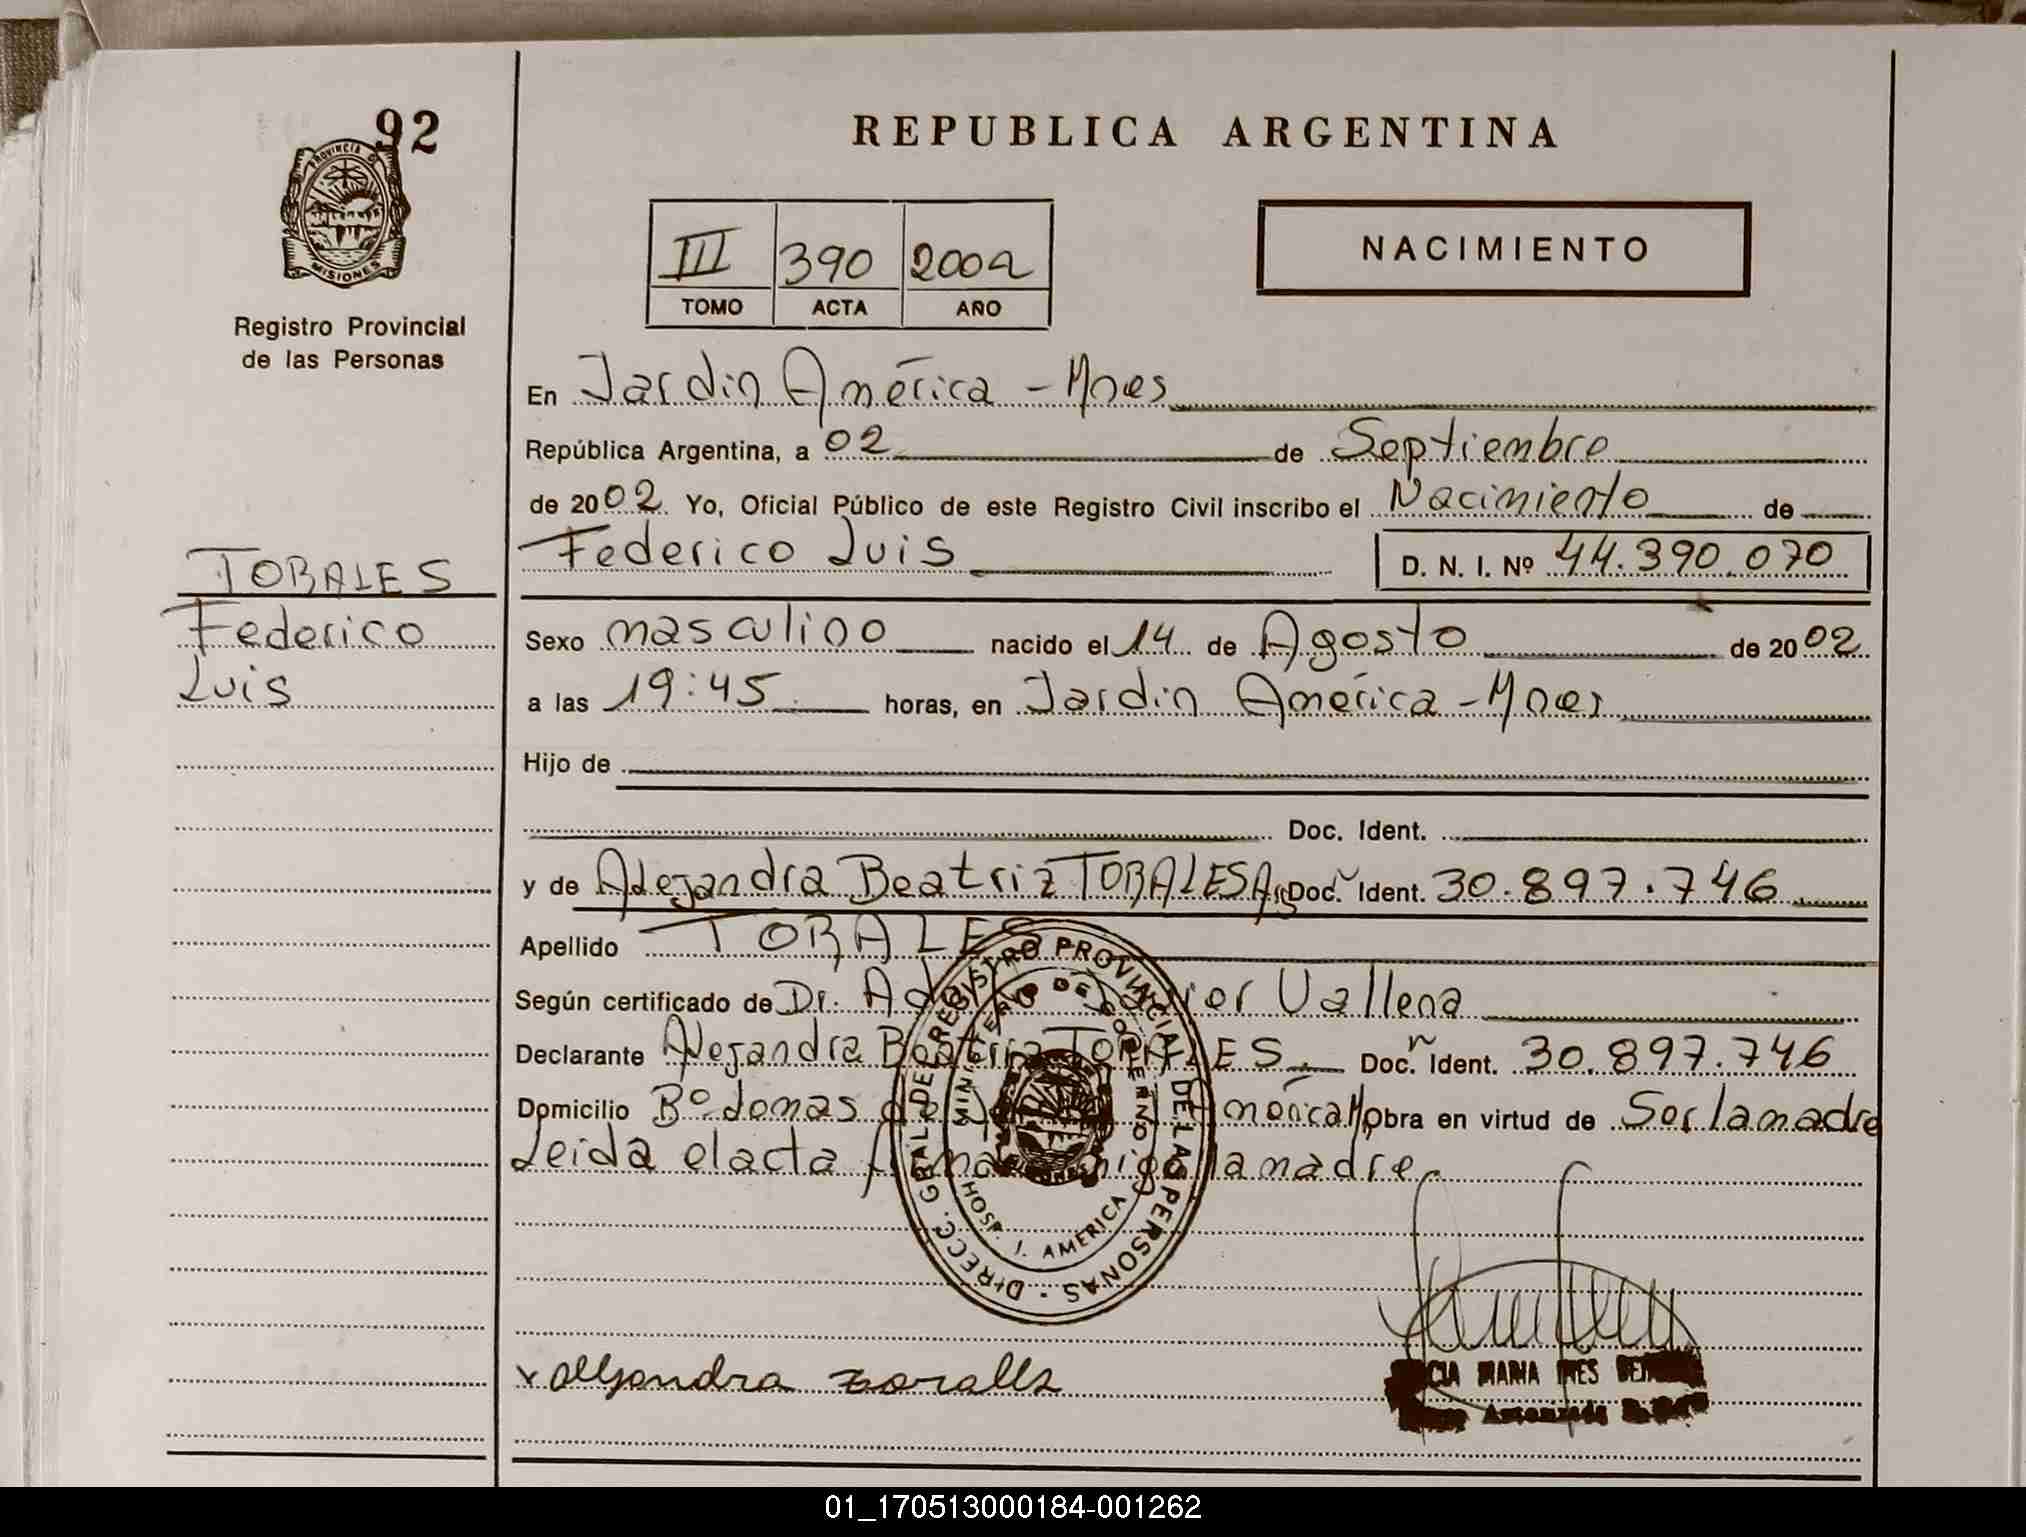 92
PROVINCIA D
MISIONES
Registro Provincial
de las Personas
REPUBLICA ARGENTINA
III 390 2002
TOMO ACTA AÑO
NACIMIENTO
En Jardin América - Mnes
República Argentina, a 02 de Septiembre
de 2002 Yo, Oficial Público de este Registro Civil inscribo el Nacimiento de
Federico Luis D. N. I. Nº 44.390.070
TORALES
Federico
Luis
Sexo masculino nacido el 14 de Agosto de 2002
a las 19:45 horas, en Jardin América - Mnes
Hijo de
Doc. Ident.
y de Alejandra Beatriz TORALES Doc. Ident. 30.897.746
Apellido TORALES
Según certificado de Dr. Vallena
Declarante Alejandra Beatriz TORALES Doc. Ident. 30.897.746
Domicilio Bº Lomas de América obra en virtud de Ser la madre
Leida el acta la madre
DIRECC. GRAL. DEL REGISTRO PROVINCIAL DE LAS PERSONAS
MINISTERIO DE GOBIERNO
HOSP. J. AMERICA
x Alejandra toralez
MARIA INES
01_170513000184-001262